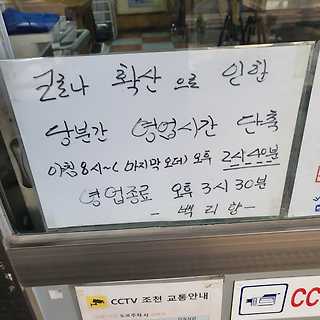 코로나 확산 으로 인함
당분간 영업시간 단축
아침 8시~(마지막 오더) 오후 2시 40분
영업종료 오후 3시 30분
- 백리향 -
CCTV 조천 교통안내
CC